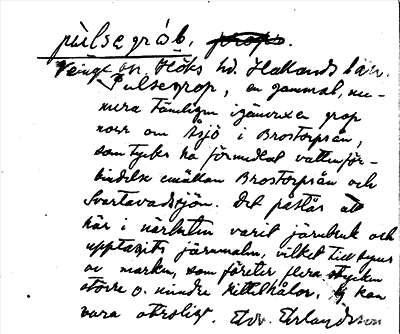 pulsegråb.
Veinge sn Höks hd. Hallands län.
Pulsegrop, en gammal, nu-
mera tämligen igenvuxen grop
norr om Åsjö i Brostorpsån,
som tyckes ha förmedlat vattenför-
bindelse emellan Brostorpsån och
Svartavadsjön. Det påstås att
här i närheten varit järnbruk och
upptagits järnmalm, vilket till synes
av marken, som företer flera
större o. mindre kittelhålor, ej kan
vara otroligt. Edv. Erlandsson